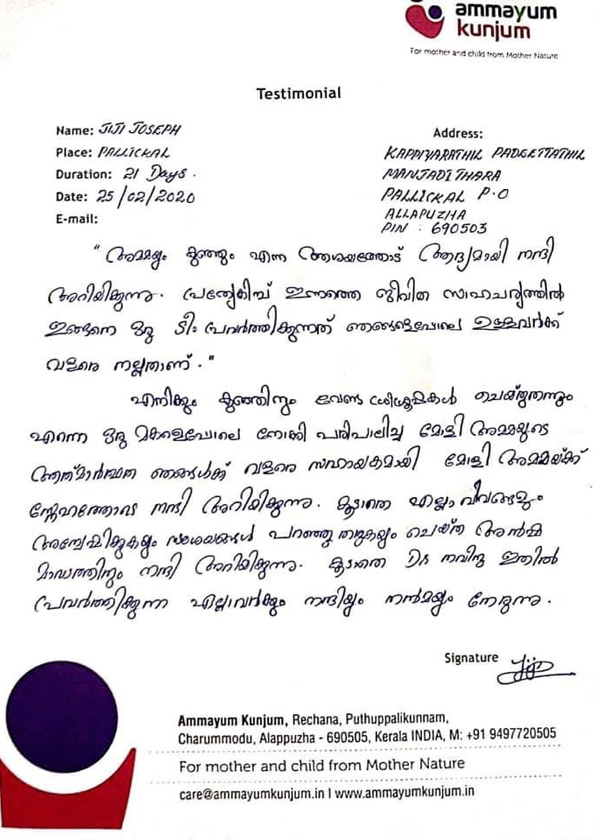 ammayum
kunjum
For mother and child from Mother Nature
Testimonial
Name: JIJI JOSEPH
Place: PALLICKAL
Duration: 21 Days.
Date: 25/02/2020
E-mail:
Address:
KAPPIYARATHIL PADEETTATHIL
MANJADITHARA
PALLICKAL P.O
ALLAPUZHA
PIN : 690503
" അമ്മയും കുഞ്ഞും എന്ന ആശയത്തോട് ആദ്യമായി നന്ദി
അറിയിക്കുന്നു. പ്രത്യേകിച്ച് ഇന്നത്തെ ജീവിത സാഹചര്യത്തിൽ
ഇങ്ങനെ ഒരു ടീം പ്രവർത്തിക്കുന്നത് ഞങ്ങളെപോലെ ഉള്ളവർക്ക്
വളരെ നല്ലതാണ്. "
എനിക്കും കുഞ്ഞിനും വേണ്ട ശുശ്രൂഷകൾ ചെയ്തുതന്നും
എന്നെ ഒരു മകളെപോലെ നോക്കി പരിപാലിച്ച മോളി അമ്മയുടെ
ആത്മാർത്ഥത ഞങ്ങൾക്ക് വളരെ സഹായകമായി മോളി അമ്മയ്ക്ക്
സ്നേഹത്തോടെ നന്ദി അറിയിക്കുന്നു. കൂടാതെ എല്ലാ വിവരങ്ങളും
അന്വേഷിക്കുകയും സംശയങ്ങൾ പറഞ്ഞു തരുകയും ചെയ്ത
മാഡത്തിനും നന്ദി അറിയിക്കുന്നു. കൂടാതെ Dr നവീനു ഇതിൽ
പ്രവർത്തിക്കുന്ന എല്ലാവർക്കും നന്ദിയും നൻമയും നേരുന്നു.
Signature Jiji
Ammayum Kunjum, Rechana, Puthuppalikunnam,
Charummodu, Alappuzha - 690505, Kerala INDIA, M: +91 9497720505
For mother and child from Mother Nature
care@ammayumkunjum.in I www.ammayumkunjum.in